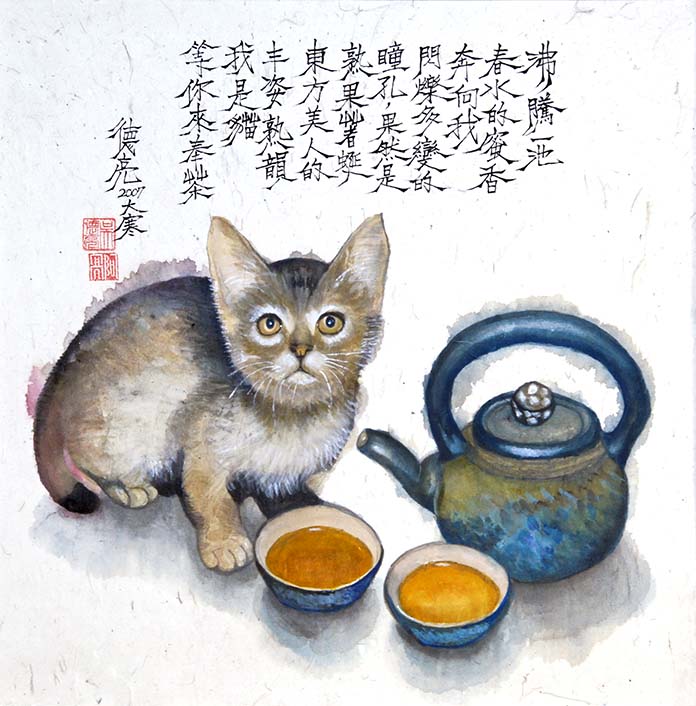 沸騰一池
春水的蜜香
奔向我
閃爍多變的
瞳孔，果然是
熟果著蜒
東方美人的
丰姿熟韻
我是貓
等你來奉茶
德亮 2007大寒